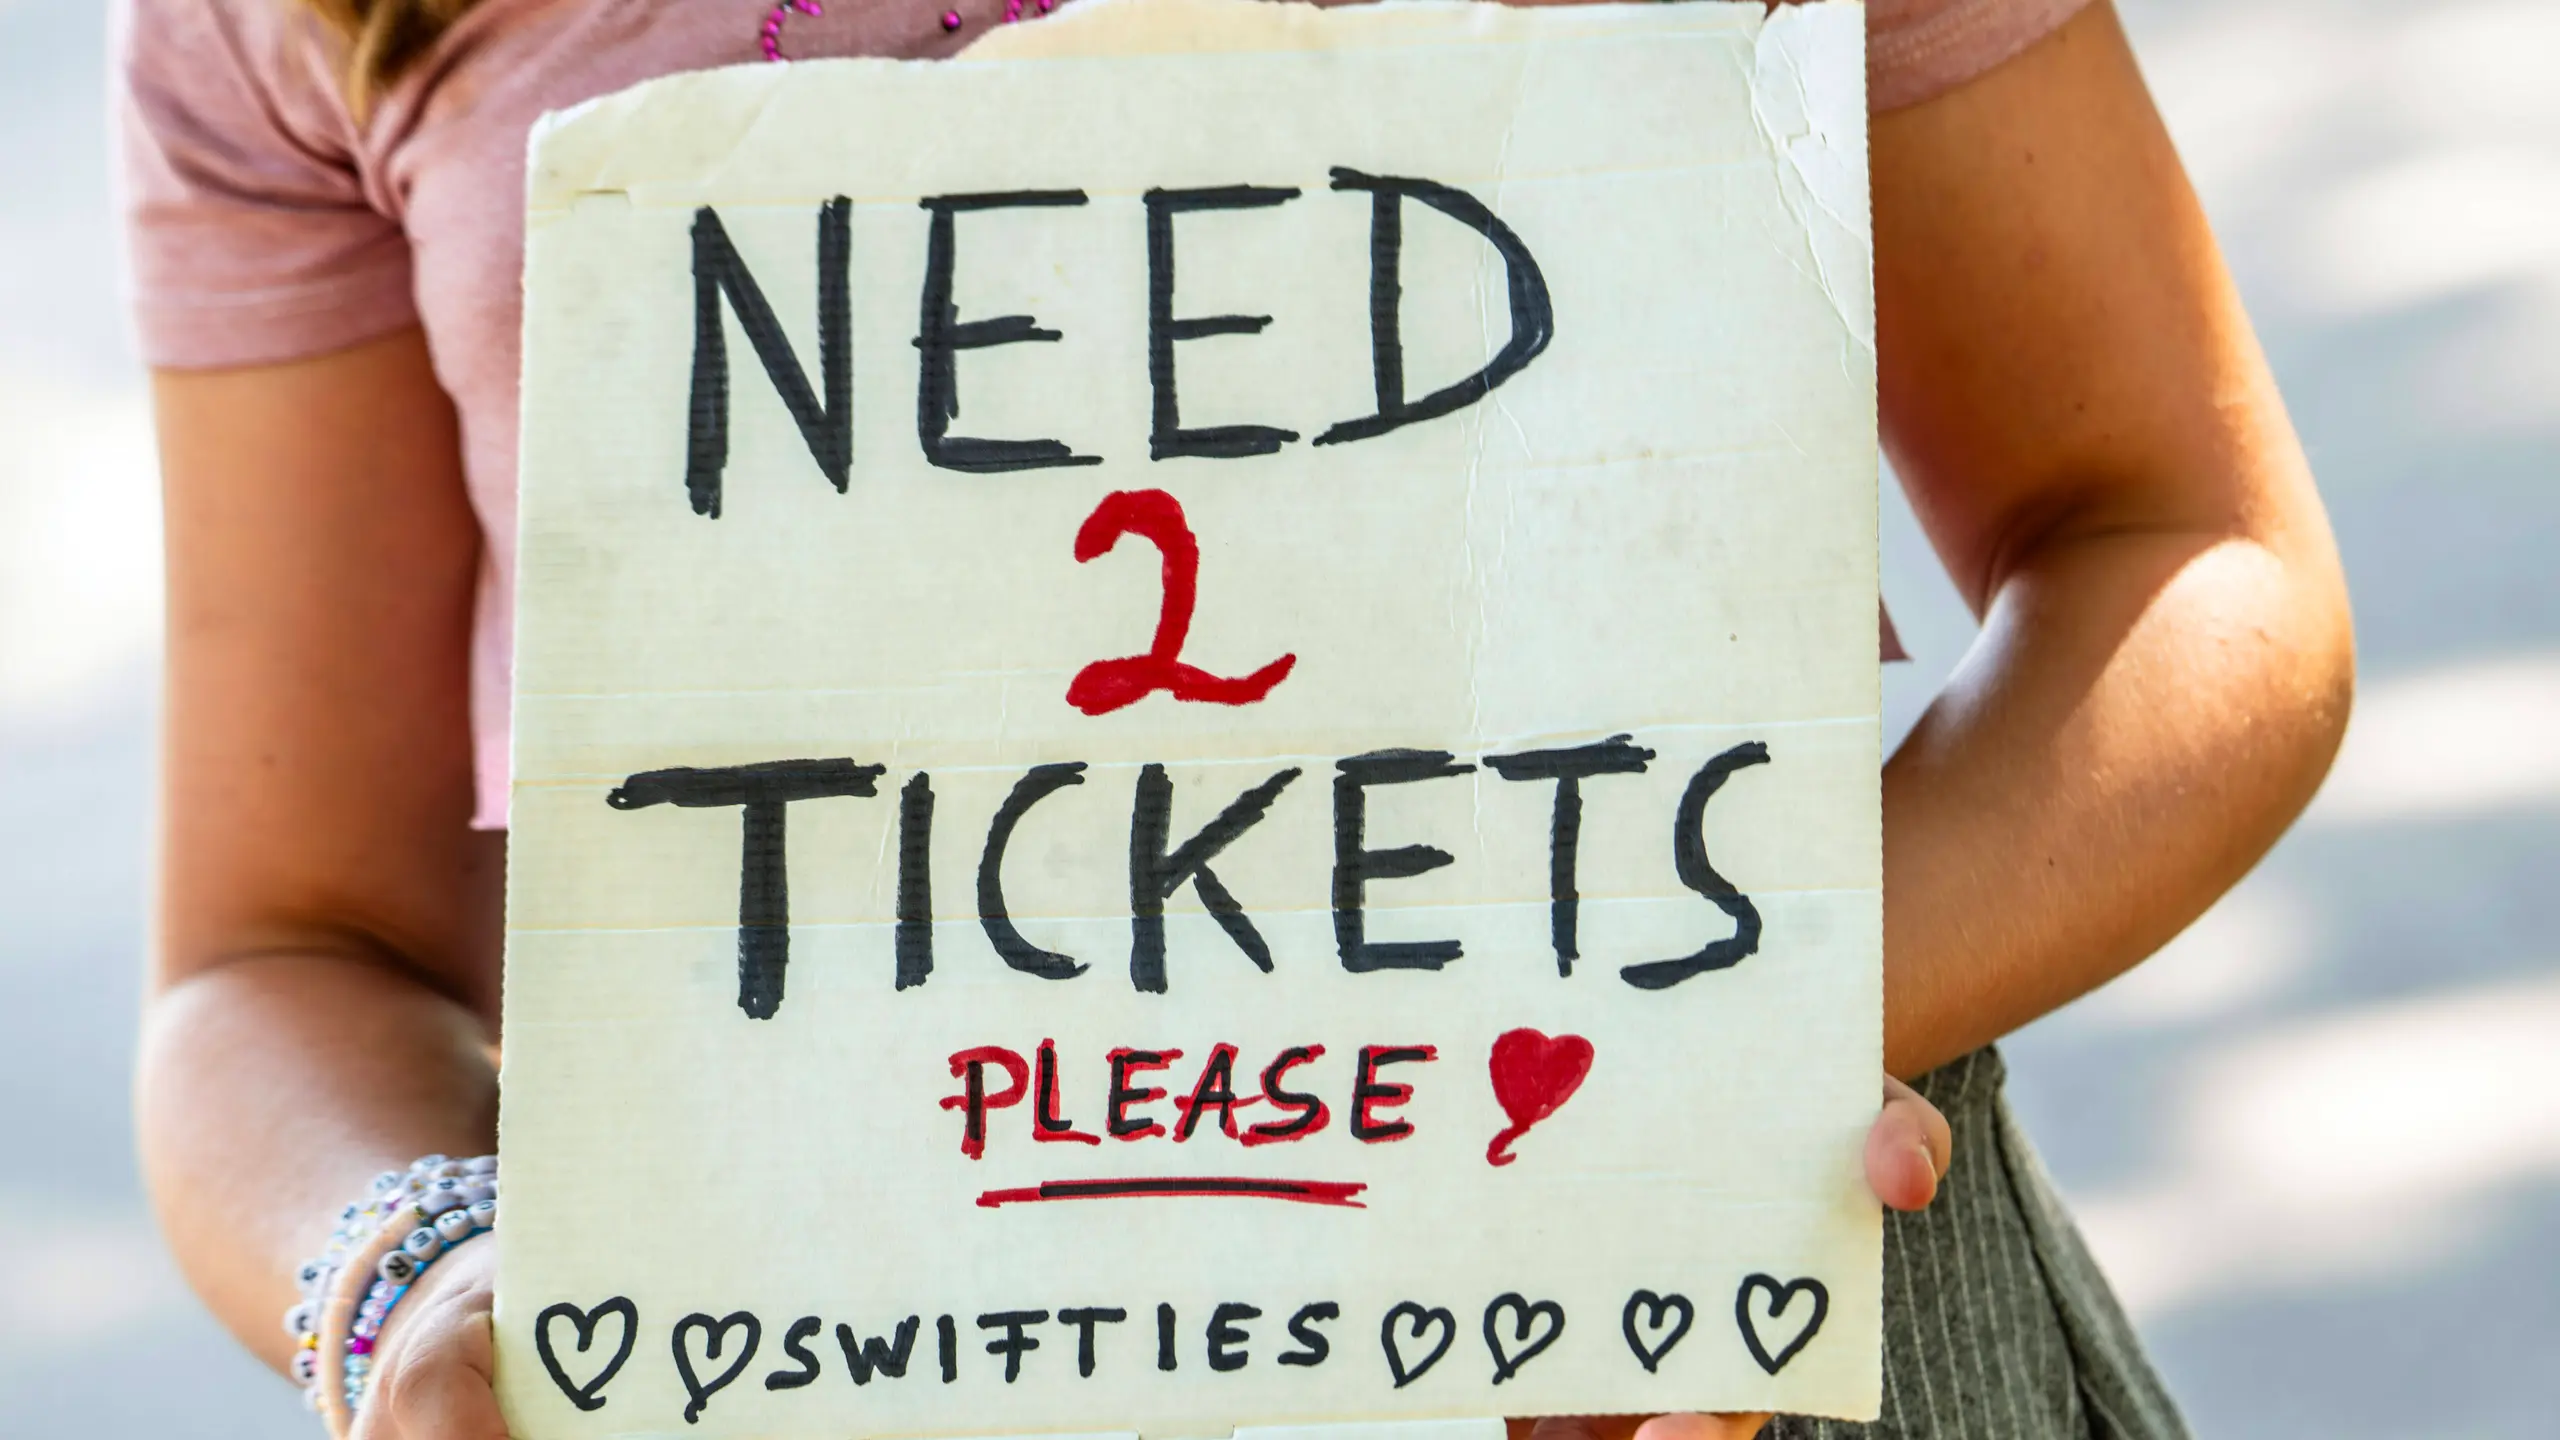 NEED
2
TICKETS
PLEASE
SWIFTIES